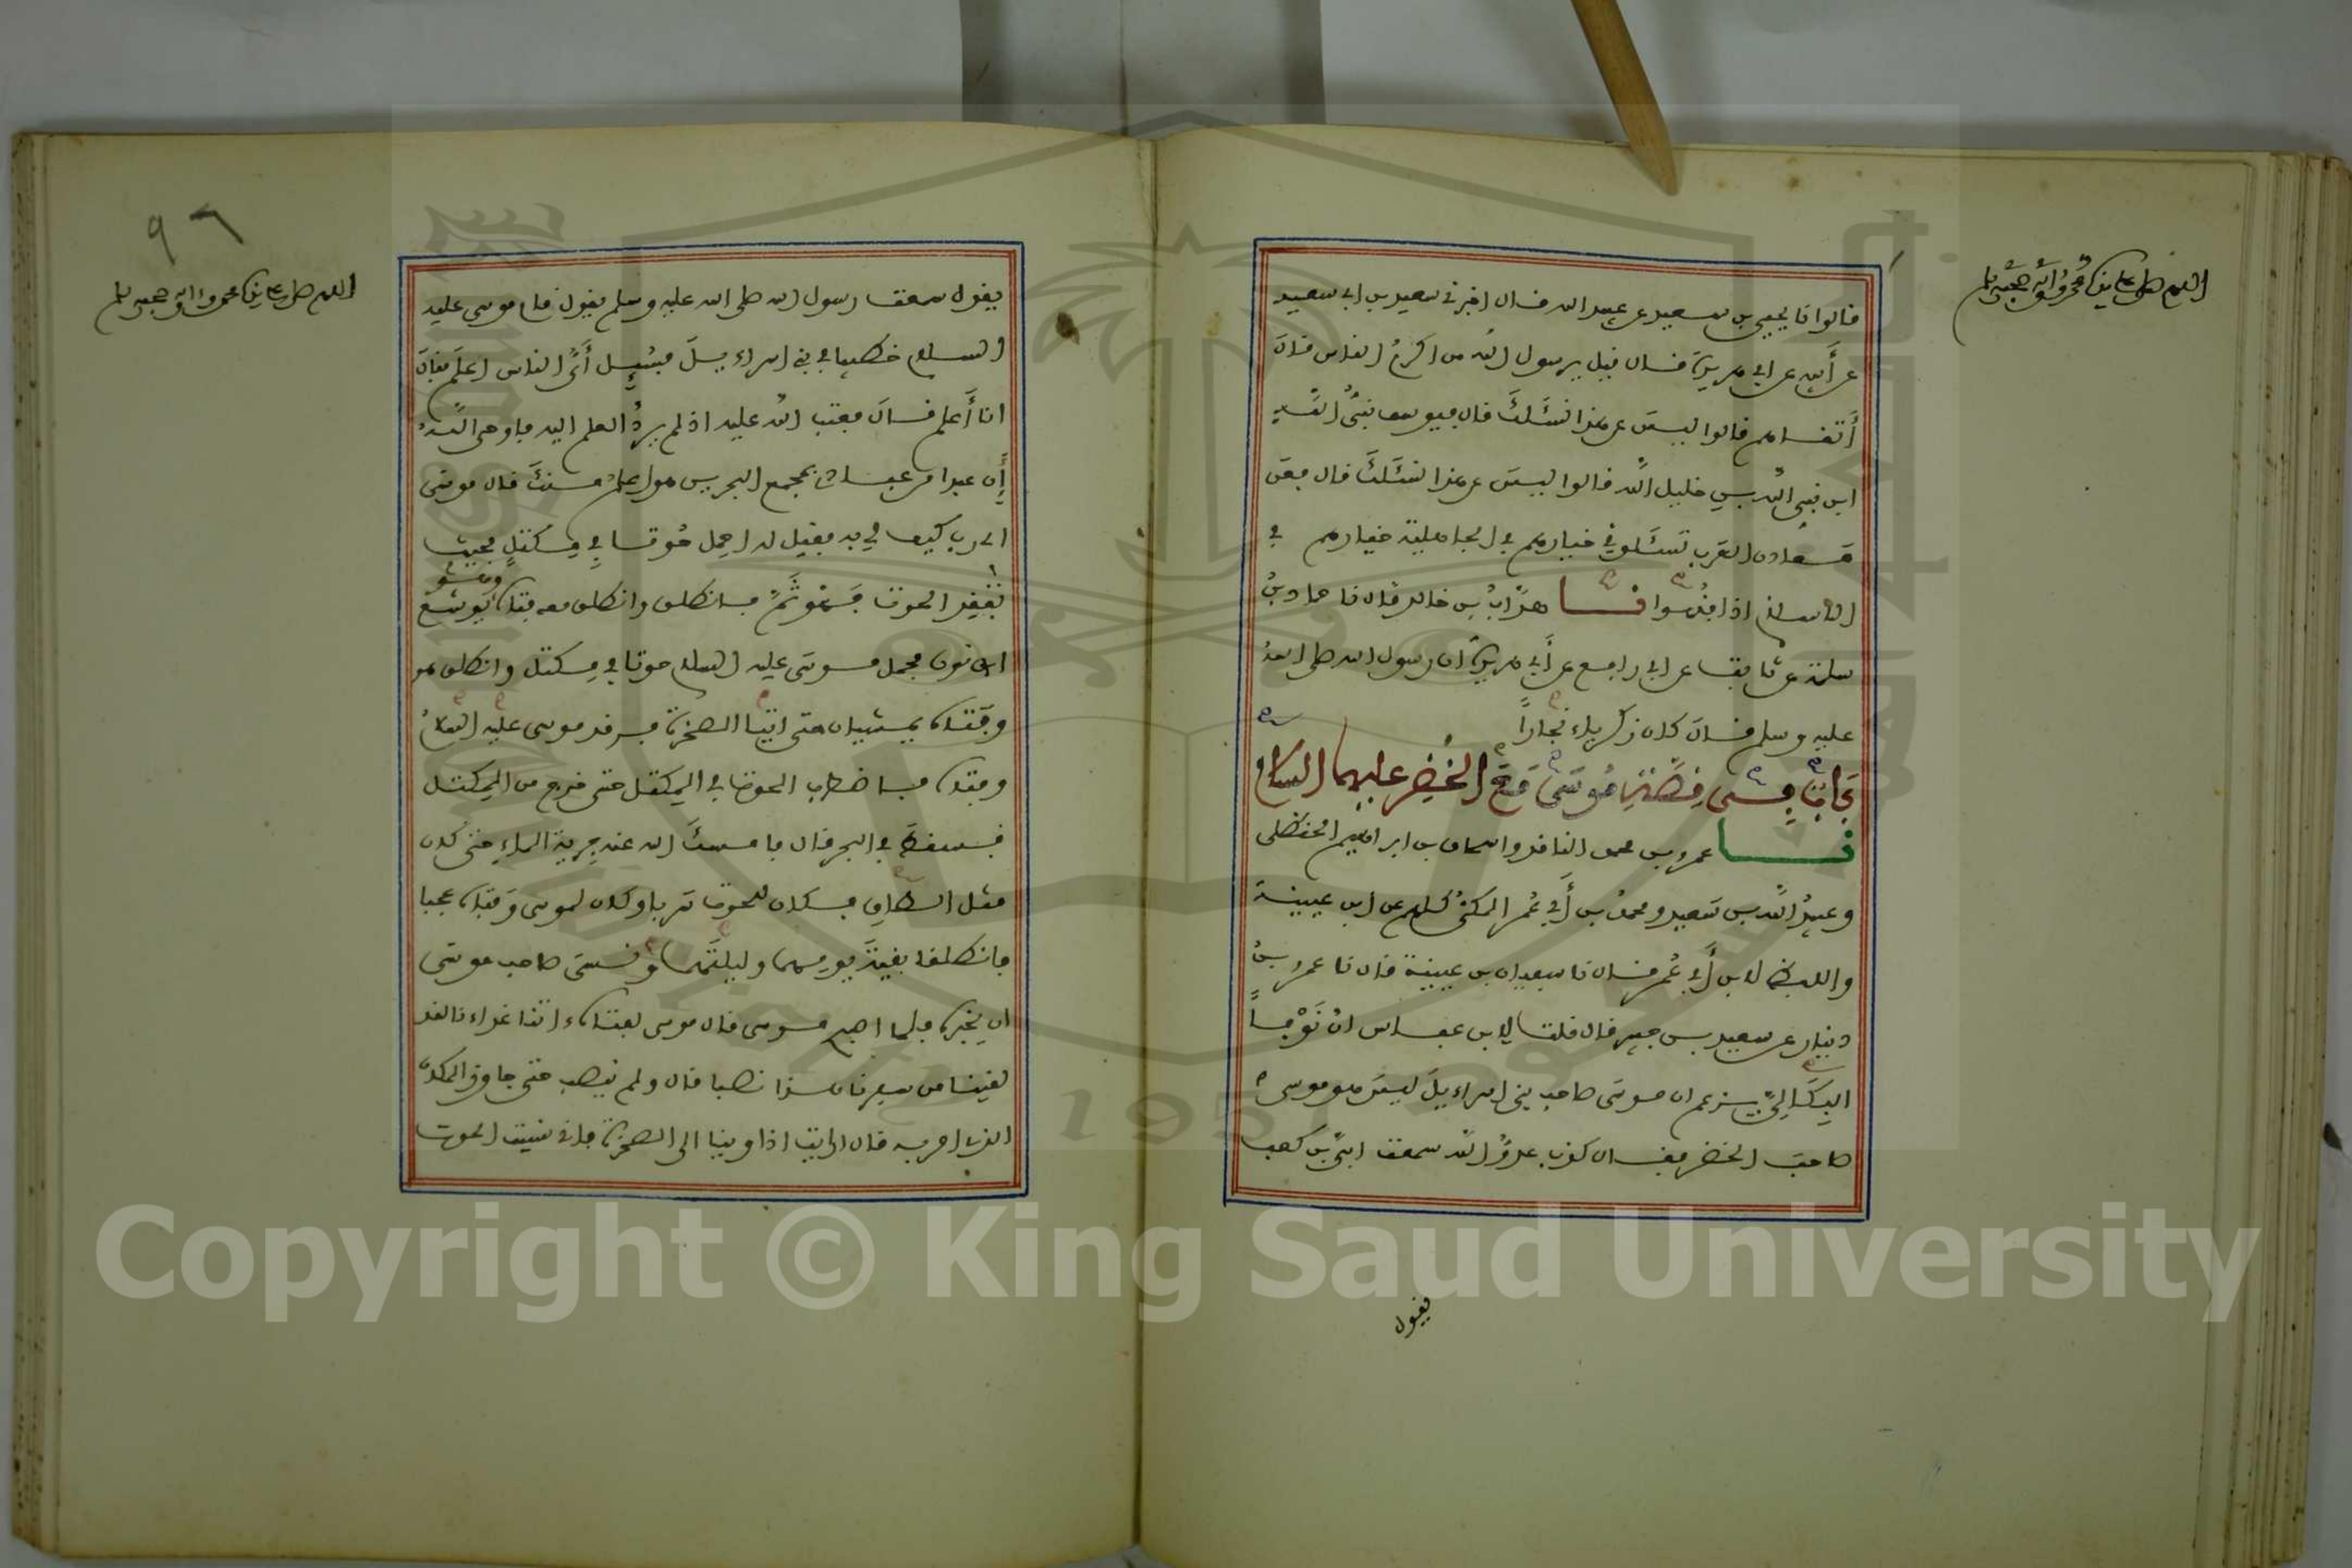 اللهم صل على سيدنا محمد وءاله وصحبه وسلم
قالوا نا يحيى بن سعيد عن عبيد الله قال اخبرني سعيد بن ابي سعيد
عن أبيه عن ابي هريرة قال قيل يرسول الله من اكرم الناس قال
أتقاهم قالوا ليس عن هذا نسئلك قال فيوسف نبي الله
ابن نبي الله بن خليل الله قالوا ليس عن هذا نسئلك قال فعن
معادن العرب تسئلوني خيارهم في الجاهلية خيارهم في
الاسلام اذا فقهوا نا هدّاب بن خالد قال نا حماد بن
سلمة عن ثابت عن ابي رافع عن أبي هريرة ان رسول الله صلى الله
عليه وسلم قال كان زكرياء نجارا
باب في قصة موسى مع الخضر عليهما السلام
نا عمرو بن محمد الناقد واسحاق بن ابراهيم الحنظلي
وعبيد الله بن سعيد ومحمد بن أبي عمر المكي كلهم عن ابن عيينة
واللفظ لابن أبي عمر قال نا سفيان بن عيينة قال نا عمرو بن
دينار عن سعيد بن جبير قال قلت لابن عباس ان نوفا
البكالي يزعم ان موسى صاحب بني اسراءيل ليس هو موسى
صاحب الخضر فقال كذب عدو الله سمعت ابي بن كعب
يقول
٩٦
اللهم صل على سيدنا محمد وءاله وصحبه وسلم
يقول سمعت رسول الله صلى الله عليه وسلم يقول قام موسى عليه
السلام خطيبا في بني اسراءيل فسئل أي الناس اعلم فقال
انا أعلم قال فعتب الله عليه اذ لم يرد العلم اليه فاوحى الله
إن عبدا من عبادي بمجمع البحرين هو اعلم منك قال موسى
اي رب كيف لي به فقيل له احمل حوتا في مكتل فحيث
تفقد الحوت فهو ثم فانطلق وانطلق معه فتاه يوشع
ابن نون فحمل موسى عليه السلام حوتا في مكتل وانطلق هو
وفتاه يمشيان حتى اتيا الصخرة فرقد موسى عليه السلام
وفتاه فاضطرب الحوت في المكتل حتى خرج من المكتل
فسقط في البحر قال فامسك الله عنه جرية الماء حتى كان
مثل الطاق فكان للحوت سربا وكان لموسى وفتاه عجبا
فانطلقا بقية يومهما وليلتهما ونسى صاحب موسى
ان يخبره فلما اصبح موسى قال موسى لفتاه ءاتنا غداءنا لقد
لقينا من سفرنا هذا نصبا قال ولم ينصب حتى جاوز المكان
الذي امر به قال ارايت اذ اوينا الى الصخرة فاني نسيت الحوت